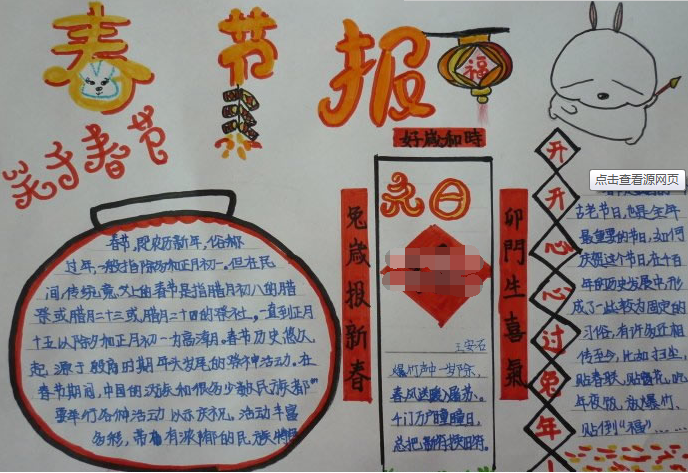 春节报
福
关于春节
春节,既农历新年,俗称
过年,一般指除夕和正月初一。但在民
间传统意义上的春节是指腊月初八的腊
祭或腊月二十三或腊月二十四的祭社,一直到正月
十五以除夕和正月初一为高潮。春节历史悠久,
起源于殷商时期年头岁尾的祭神活动。在
春节期间,中国的汉族和很多少数民族都
要举行各种活动以示庆祝。活动丰富
多彩,带有浓郁的民族特
好歲和時
兔歲报新春
卯門生喜氣
元日
王安石
爆竹声中一岁除,
春风送暖入屠苏。
千门万户曈曈日,
总把新桃换旧符。
开开心心过兔年
点击查看源网页
古老节日,也是全年
最重要的节日,如何
庆贺这个节日,在千百
年的历史发展中,形
成了一些较为固定的
习俗,有许多还相
传至今,比如扫尘,
贴春联,贴窗花,吃
年夜饭,放爆竹,
贴倒“福”……